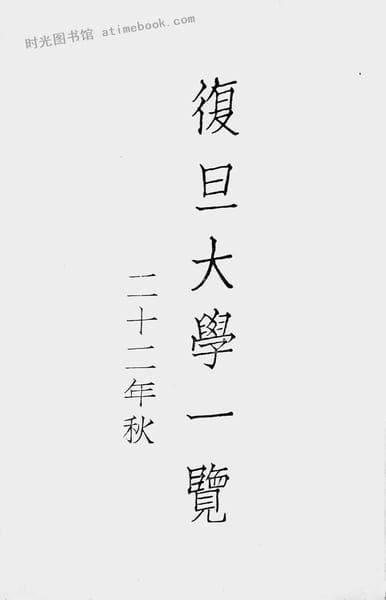 时光图书馆 atimebook.com
復旦大學一覽
二十二年秋